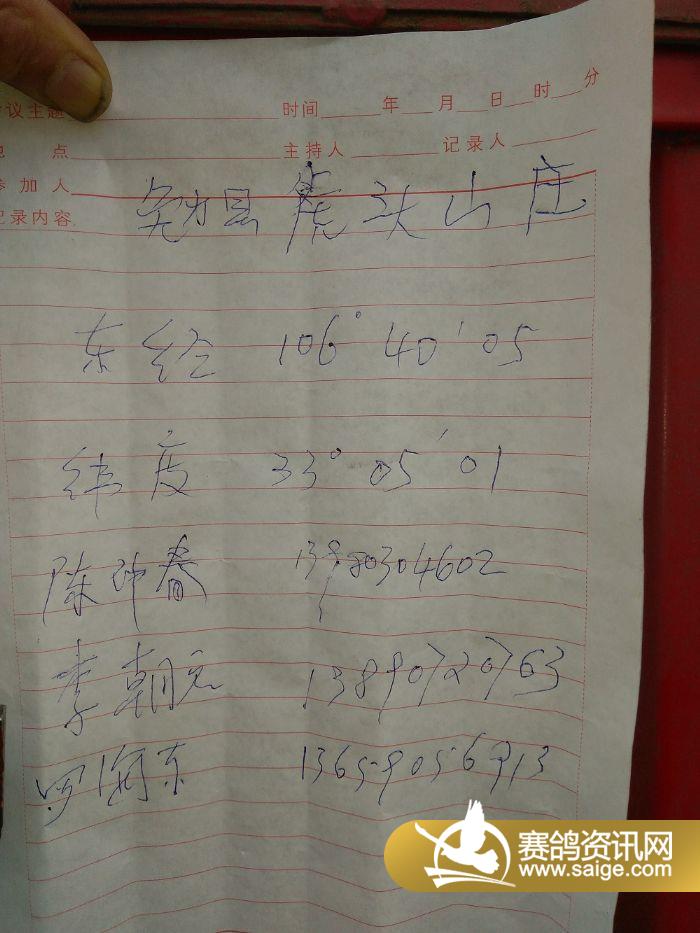 议主题 时间 年 月 日 时 分
点 主持人 记录人
参加人
记录内容
勉县 虎头山庄
东经 106° 40′ 05
纬度 33° 05′ 01
陈 春 13980304602
李朝 13890720763
罗 东 13659056913
赛鸽资讯网
www.saige.com